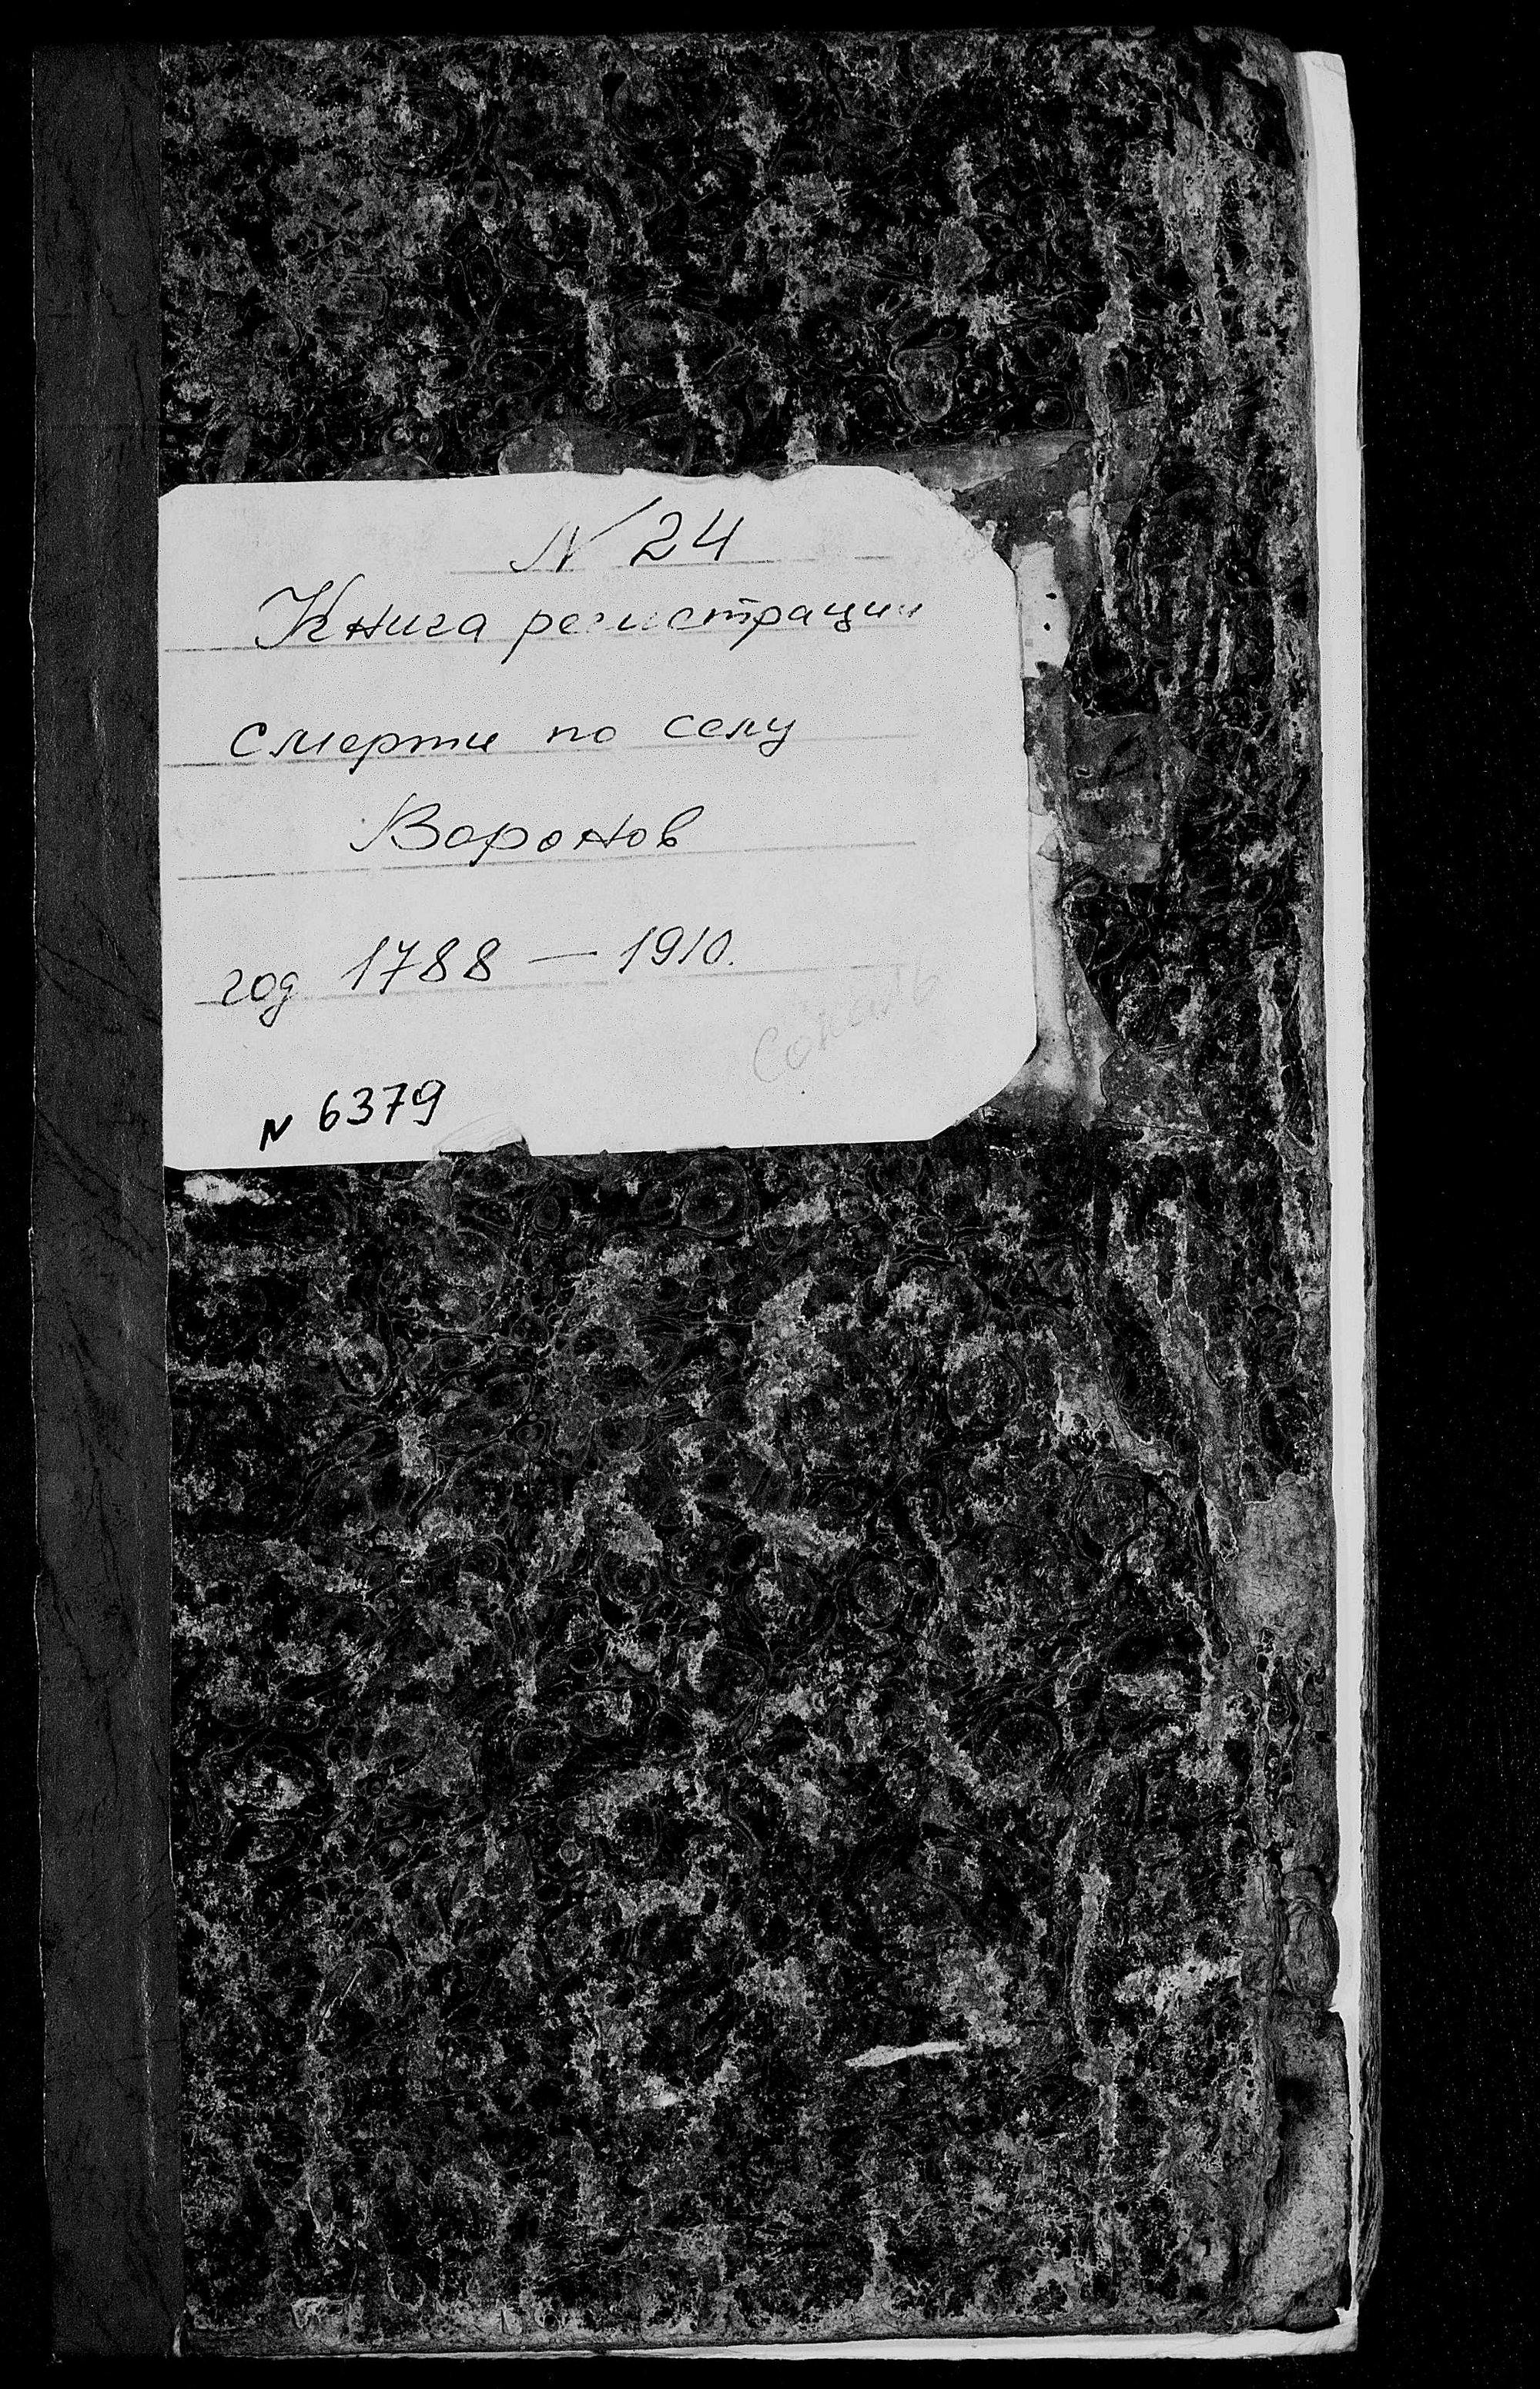 N 24
Книга регистрации
смерти по селу
Воронов
год 1788 — 1910.
Сокаль
N 6379